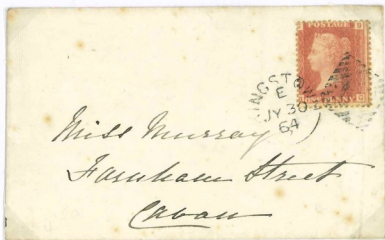 POSTAGE
ONE PENNY
INGSTOW
E
JY 30
64
Miss Murray
Farnham Street
Cavan